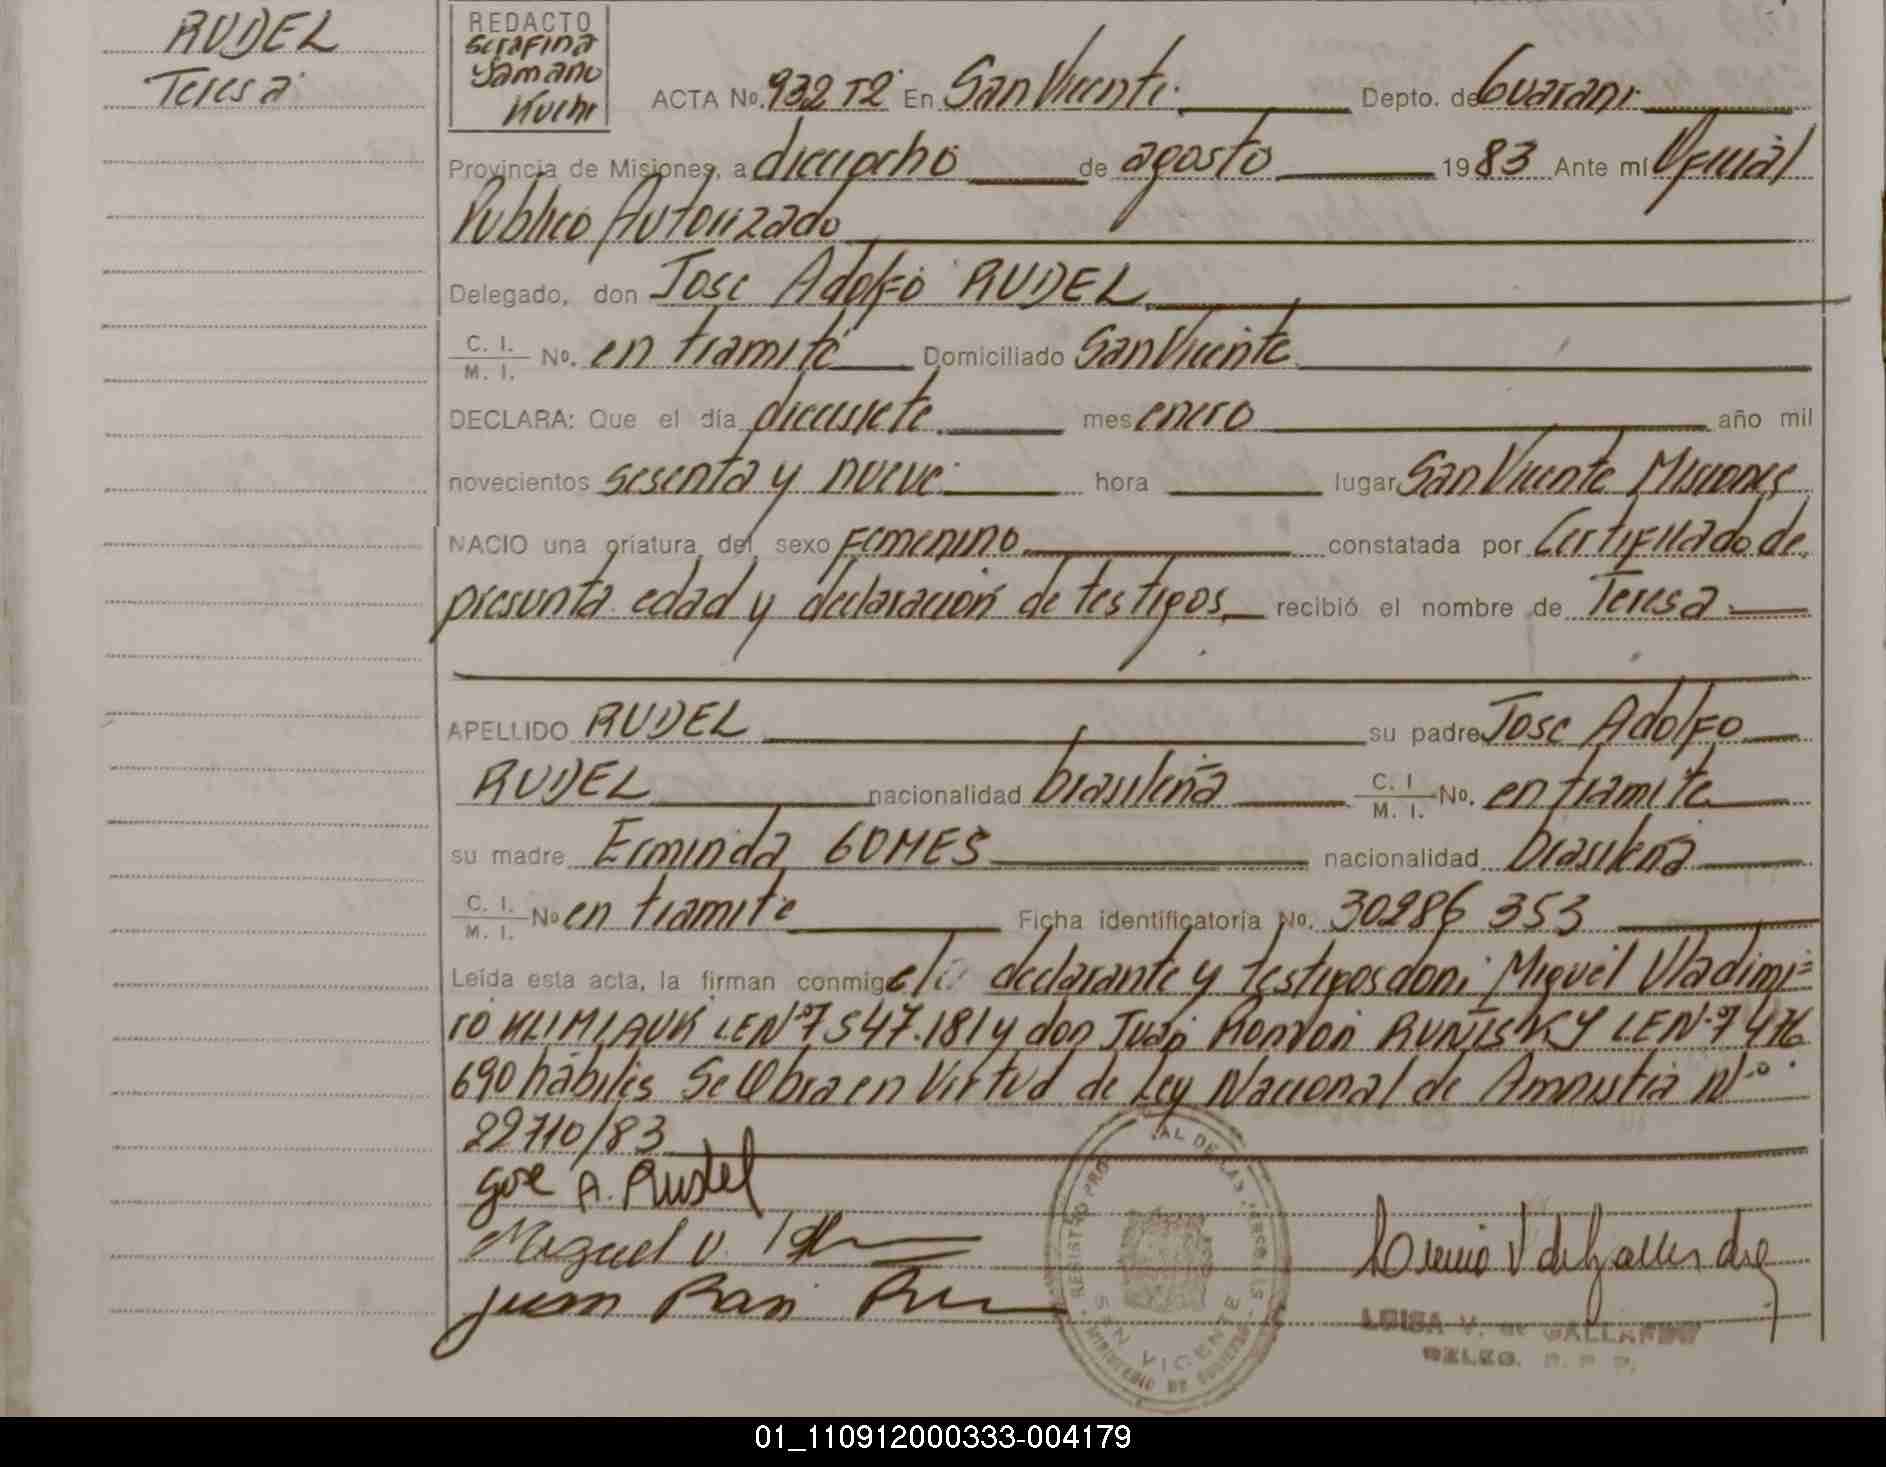 RUDEL
Teresa
REDACTO
Serafina
Yamano
Kuchr
ACTA No. 932 T2° En San Vicente. Depto. de Guarani
Provincia de Misiones, a dieciocho de agosto 1983 Ante mí Oficial
Publico Autorizado
Delegado, don Jose Adolfo RUDEL
C. I. / M. I. No. en tramite Domiciliado San Vicente
DECLARA: Que el día diecisiete mes enero año mil
novecientos sesenta y nueve hora lugar San Vicente Misiones
NACIO una criatura del sexo Femenino constatada por Certificado de
presunta edad y declaración de testigos recibió el nombre de Teresa
APELLIDO RUDEL su padre Jose Adolfo
RUDEL nacionalidad brasileña C. I. / M. I. No. en tramite
su madre Erminda GOMES nacionalidad brasileña
C. I. / M. I. No en tramite Ficha identificatoria No. 30286 353
Leída esta acta, la firman conmigo el declarante y testigos don: Miguel Vladimi=
ro KLIMIAUK LE Nº 7547.181 y don Juan Ramon RUNISKY LE Nº 7 476
690 hábiles Se Obra en Virtud de Ley Nacional de Amnistia Nº
22710/83
Jose A. Rudel
Miguel V.
Juan Ram
REGISTRO PRO AL DE LAS PERSONAS
SAN VICENTE
MINISTERIO DE GOBIERNO
LUISA V. de GALLARDO
DELEG. R. P. P.
01_110912000333-004179